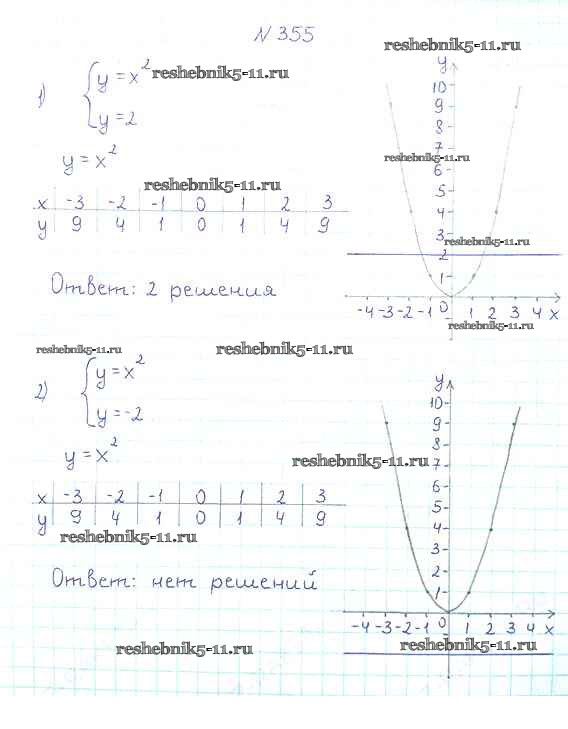 N 355
reshebnik5-11.ru
1) { y = x² reshebnik5-11.ru
y = 2
y = x²
reshebnik5-11.ru
reshebnik5-11.ru
x -3 -2 -1 0 1 2 3
y 9 4 1 0 1 4 9
y
10
9
8
7
6
5
4
3
2
1
reshebnik5-11.ru
-4 -3 -2 -1 0 1 2 3 4 x
Ответ: 2 решения
reshebnik5-11.ru
reshebnik5-11.ru
reshebnik5-11.ru
2) { y = x²
y = -2
y = x²
reshebnik5-11.ru
x -3 -2 -1 0 1 2 3
y 9 4 1 0 1 4 9
reshebnik5-11.ru
y
10
9
8
7
6
5
4
3
2
1
-4 -3 -2 -1 0 1 2 3 4 x
Ответ: нет решений
reshebnik5-11.ru
reshebnik5-11.ru